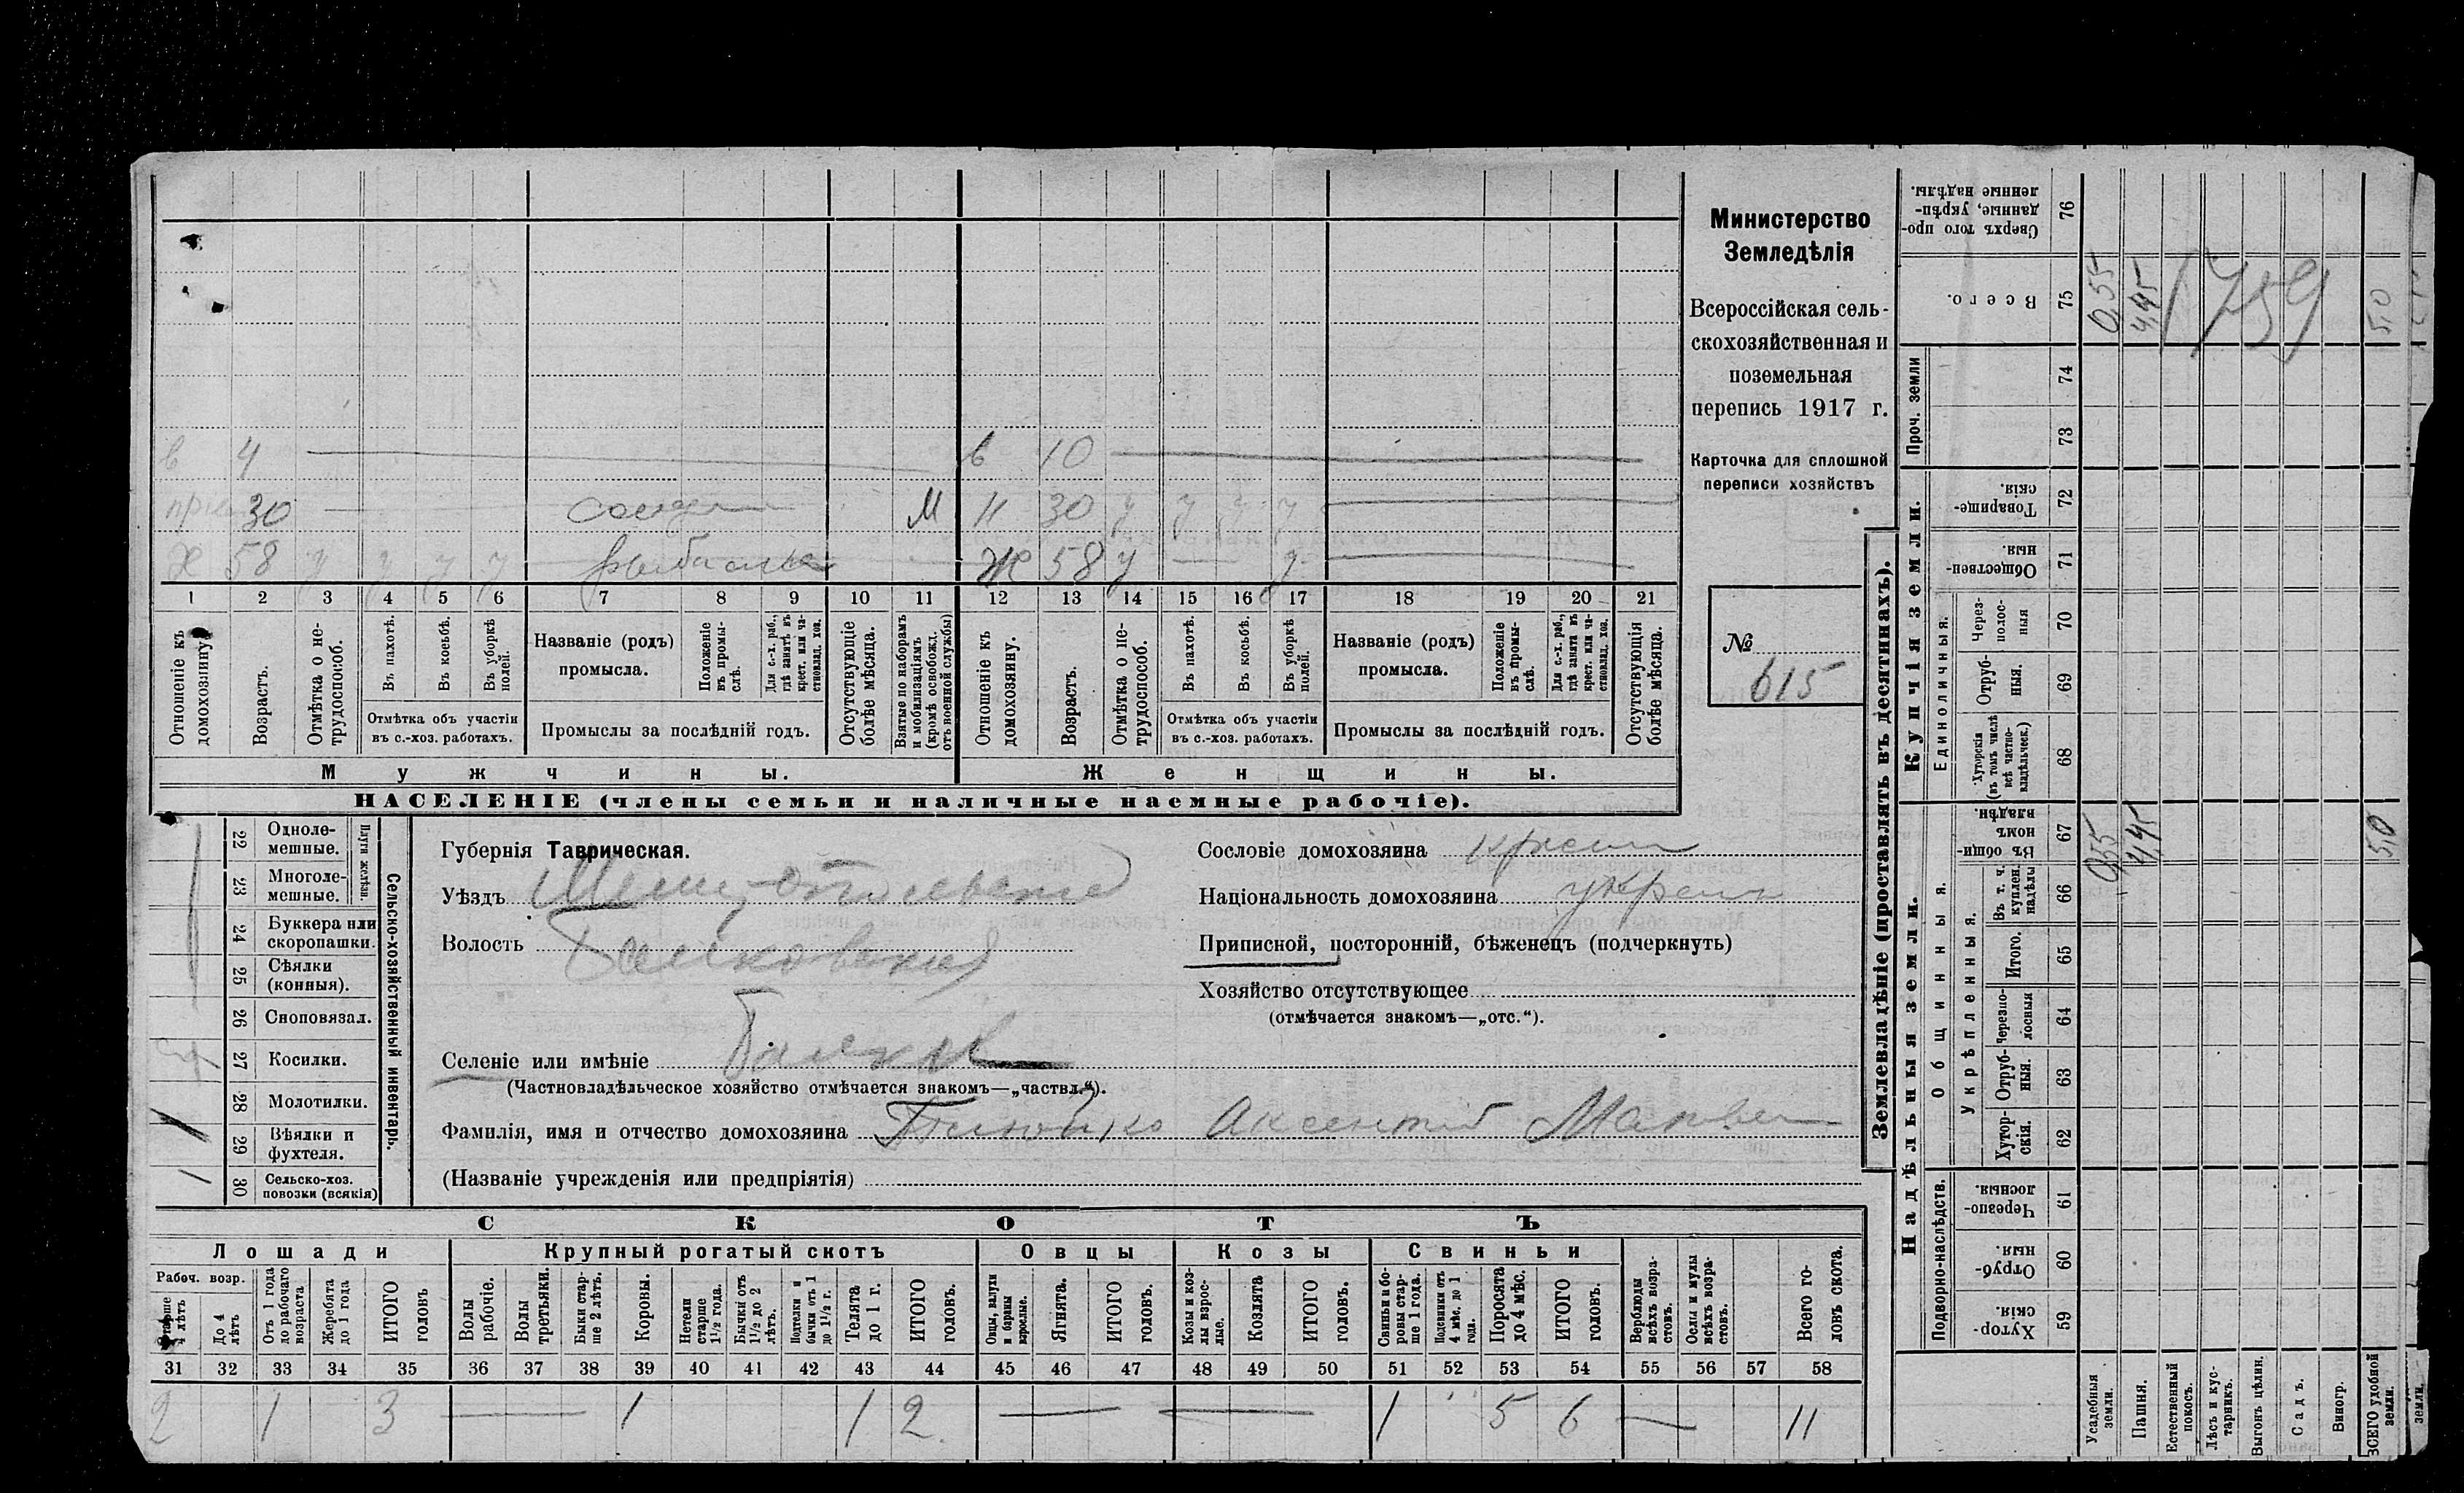 в 4 в 10
30 М 30 у у у у
58 у у у у Ж 58 у у
1 2 3 4 5 6 7 8 9 10 11 12 13 14 15 16 17 18 19 20 21
Отношеніе къ домохозяину.
Возрастъ.
Отмѣтка о не-
трудоспособ.
Въ пахотѣ.
Въ косьбѣ.
Въ уборкѣ
полей.
Отмѣтка объ участіи
въ с.-хоз. работахъ.
Названіе (родъ)
промысла.
Положеніе
въ промы-
слѣ.
Для с.-х. раб.,
гдѣ занятъ въ
крест. или ча-
стновлад. хоз.
Промыслы за послѣдній годъ.
Отсутствующіе
болѣе мѣсяца.
Взятые по наборамъ
и мобилизаціямъ
(кромѣ освобожд.
отъ военной службы)
Отношеніе къ
домохозяину.
Возрастъ.
Отмѣтка о не-
трудоспособ.
Въ пахотѣ.
Въ косьбѣ.
Въ уборкѣ
полей.
Отмѣтка объ участіи
въ с.-хоз. работахъ.
Названіе (родъ)
промысла.
Положеніе
въ промы-
слѣ.
Для с.-х. раб.,
гдѣ занята въ
крест. или ча-
стновлад. хоз.
Промыслы за послѣдній годъ.
Отсутствующія
болѣе мѣсяца.
Мужчины. Женщины.
НАСЕЛЕНІЕ (члены семьи и наличные наемные рабочіе).
Министерство
Земледѣлія
Всероссійская сель-
скохозяйственная и
поземельная
перепись 1917 г.
Карточка для сплошной
переписи хозяйствъ
№
615
22 Одноле-
мешные.
23 Многоле-
мешные.
Плуги желѣзн.
24 Буккера или
скоропашки.
25 Сѣялки
(конныя).
26 Сноповязал.
27 Косилки.
28 Молотилки.
29 Вѣялки и
фухтеля.
1
30 Сельско-хоз.
повозки (всякія)
1
Сельско-хозяйственный инвентарь.
Губернія Таврическая.
Уѣздъ Мелитопольскій
Волость Балковская
Селеніе или имѣніе Балки
(Частновладѣльческое хозяйство отмѣчается знакомъ—„частвл.“).
Фамилія, имя и отчество домохозяина Аксентій
(Названіе учрежденія или предпріятія)
Сословіе домохозяина крест
Національность домохозяина украин
Приписной, посторонній, бѣженецъ (подчеркнуть)
Хозяйство отсутствующее
(отмѣчается знакомъ—„отс.“).
СКОТЪ
Лошади Крупный рогатый скотъ Овцы Козы Свиньи
Рабоч. возр.
Старше
4 лѣтъ
До 4
лѣтъ
Отъ 1 года
до рабочаго
возраста
Жеребята
до 1 года
ИТОГО
головъ
Волы
рабочіе.
Волы
третьяки.
Быки стар-
ше 2 лѣтъ.
Коровы.
Нетели
старше
1½ года.
Бычки отъ
1½ до 2
лѣтъ.
Подтелки и
бычки отъ 1
до 1½ г.
Телята
до 1 г.
ИТОГО
головъ.
Овцы, валухи
и бараны
взрослые.
Ягнята.
ИТОГО
головъ.
Козы и коз-
лы взрос-
лые.
Козлята
ИТОГО
головъ.
Свиньи и бо-
ровы стар-
ше 1 года.
Подсвинки отъ
4 мѣс. до 1
года.
Поросята
до 4 мѣс.
ИТОГО
головъ.
Верблюды
всѣхъ возра-
стовъ.
Ослы и мулы
всѣхъ возра-
стовъ.
Всего го-
ловъ скота.
31 32 33 34 35 36 37 38 39 40 41 42 43 44 45 46 47 48 49 50 51 52 53 54 55 56 57 58
2 1 3 1 1 2 1 5 6 11
Землевладѣніе (проставлять въ десятинахъ).
Надѣльныя земли. Купчія земли. Проч. земли
Подворно-наслѣдств.
Общинныя.
Укрѣпленныя.
Единоличныя.
Хутор-
скія. 59
Отруб-
ныя. 60
Черезпо-
лосныя. 61
Хутор-
скія. 62
Отруб-
ныя. 63
Черезпо-
лосныя 64
Итого. 65
Въ т. ч.
куплен.
надѣлы 66
Въ общин-
номъ
владѣн. 67
0,55 4,45 5,0
Хуторскія
(въ томъ числѣ
всѣ частно-
владѣльческ.) 68
Отруб-
ныя. 69
Через-
полос-
ныя 70
Обществен-
ныя. 71
Товарище-
скія. 72
73
74
Всего. 75
0,55 4,45 5,0
1759
Сверхъ того про-
данные, укрѣп-
ленные надѣлы. 76
Усадебныя
земли.
Пашня.
Естественный
покосъ.
Лѣсъ и кус-
тарникъ.
Выгонъ цѣлин.
Садъ.
Виногр.
ВСЕГО удобной
земли.
земли.